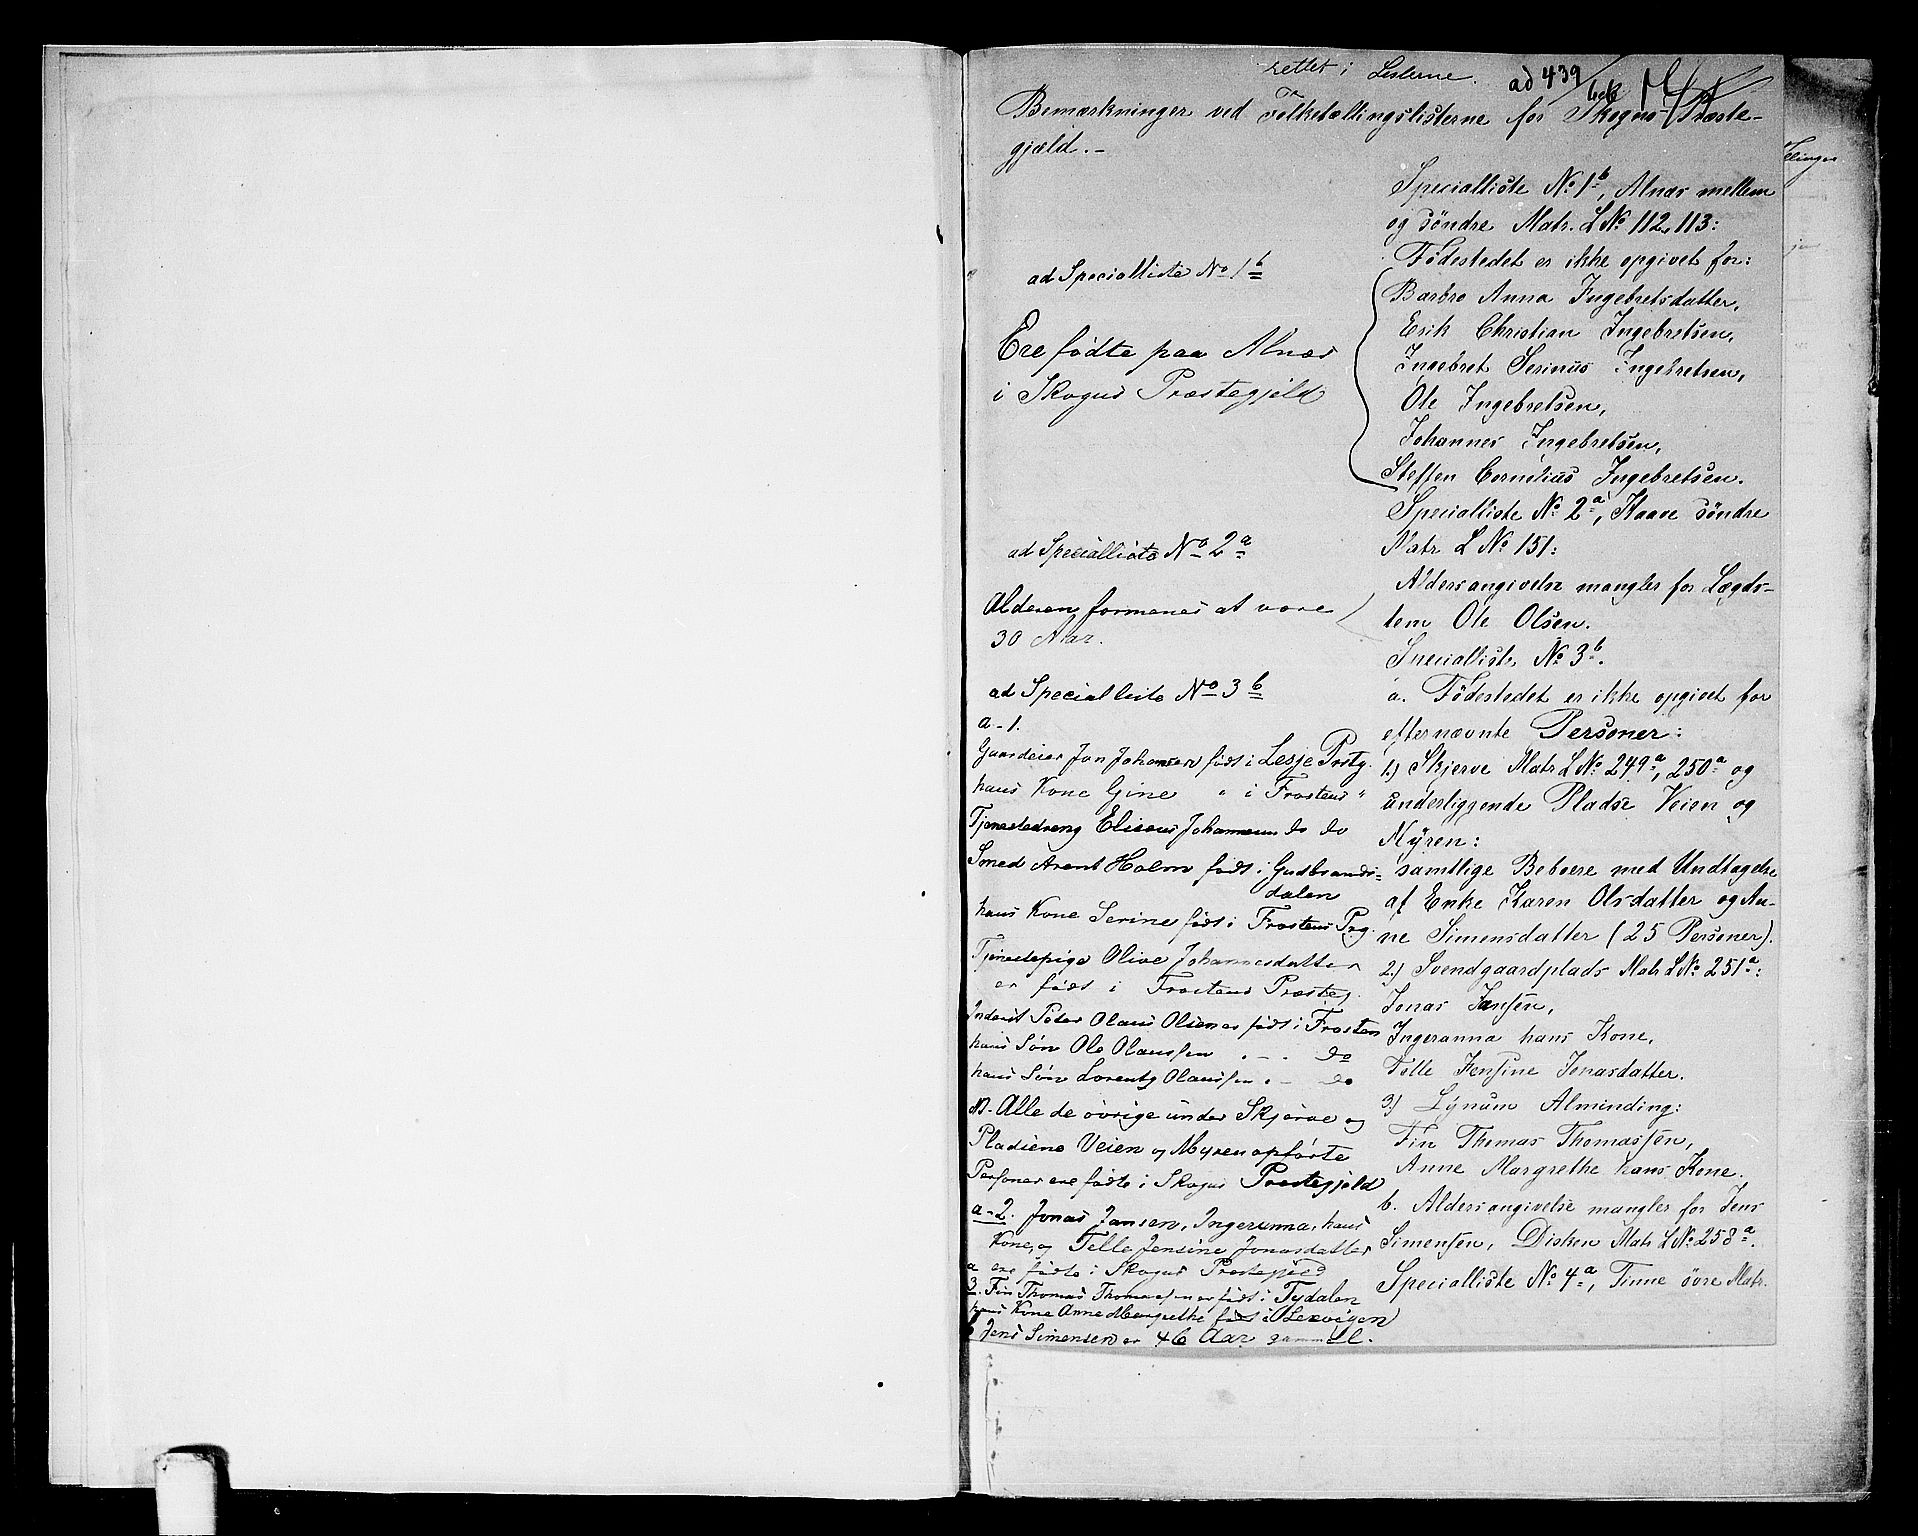 rettet i Listerne.
ad 439/66
Bemærkninger ved Folketællingslisterne for Skogns Præste-
gjæld.-
Specialliste No 1b, Alnæs mellem
og söndre Matr. LNo 112, 113:
Födestedet er ikke opgivet for:
Barbro Anna Ingebretsdatter,
Erik Christian Ingebretsen,
Ingebret Serinus Ingebretsen,
Ole Ingebretsen,
Johannes Ingebretsen,
Steffen Cornelius Ingebretsen.
Specialliste No 2a, Haave söndre
Matr L No 151:
Aldersangivelse mangler for Lægds-
lem Ole Olsen.
Specialliste No 3b.
a. Födestedet er ikke opgivet for
efternævnte Personer:
1.) Skjerve Matr LNo 249a, 250a og
underliggende Pladse Veien og
Myren:
samtlige Beboere med Undtagelse
af Enke Karen Olsdatter og An-
ne Simensdatter (25 Personer).
2.) Svendgaardplads Matr LNo 251a:
Jonas Jansen,
Ingeranna hans Kone,
Tölle Jensine Jonasdatter.
3.) Lynum Alminding:
Fin Thomas Thomassen,
Anne Margrethe hans Kone.
b. Aldersangivelse mangler for Jens
Simensen, Disken Matr LNo 258a.
Specialliste No 4a, Tinne övre Matr.
ad Specialliste No 1b
Ere födte paa Alnæs
i Skogns Præstegjeld
ad Specialliste No 2a
Alderen formenes at være
30 Aar.
ad Specialliste No 3b
a-1.
Gaardeier Jon Johansen födt i Lesje Prstg.
hans Kone Gine " i Frostens "
Tjenestedreng Eliseus Johannesen do do
Smed Arent Holm födt i Gudbrands=
dalen
hans Kone Serine födt i Frostens Prg.
Tjenestepige Olive Johannesdatter
er födt i Frostens Præsteg.
Inderst Peter Olaus Olsen er födt i Frosten
hans Sön Ole Olaussen . - . do
hans Sön Lorents Olaussen . - do
NB. Alle de övrige under Skjerve og
Pladsene Veien og Myren opförte
Personer ere födte i Skogns Prestegjeld
a-2. Jonas Jansen, Ingeranna, hans
Kone, og Telle Jensine Jonasdatter
ere födte i Skogns Prestegjeld
a
3. Fin Thomas Thomassen er födt i Tydalen
hans Kone Anne Margrethe födt i Lexvigen
b Jens Simensen er 46 Aar gammel.